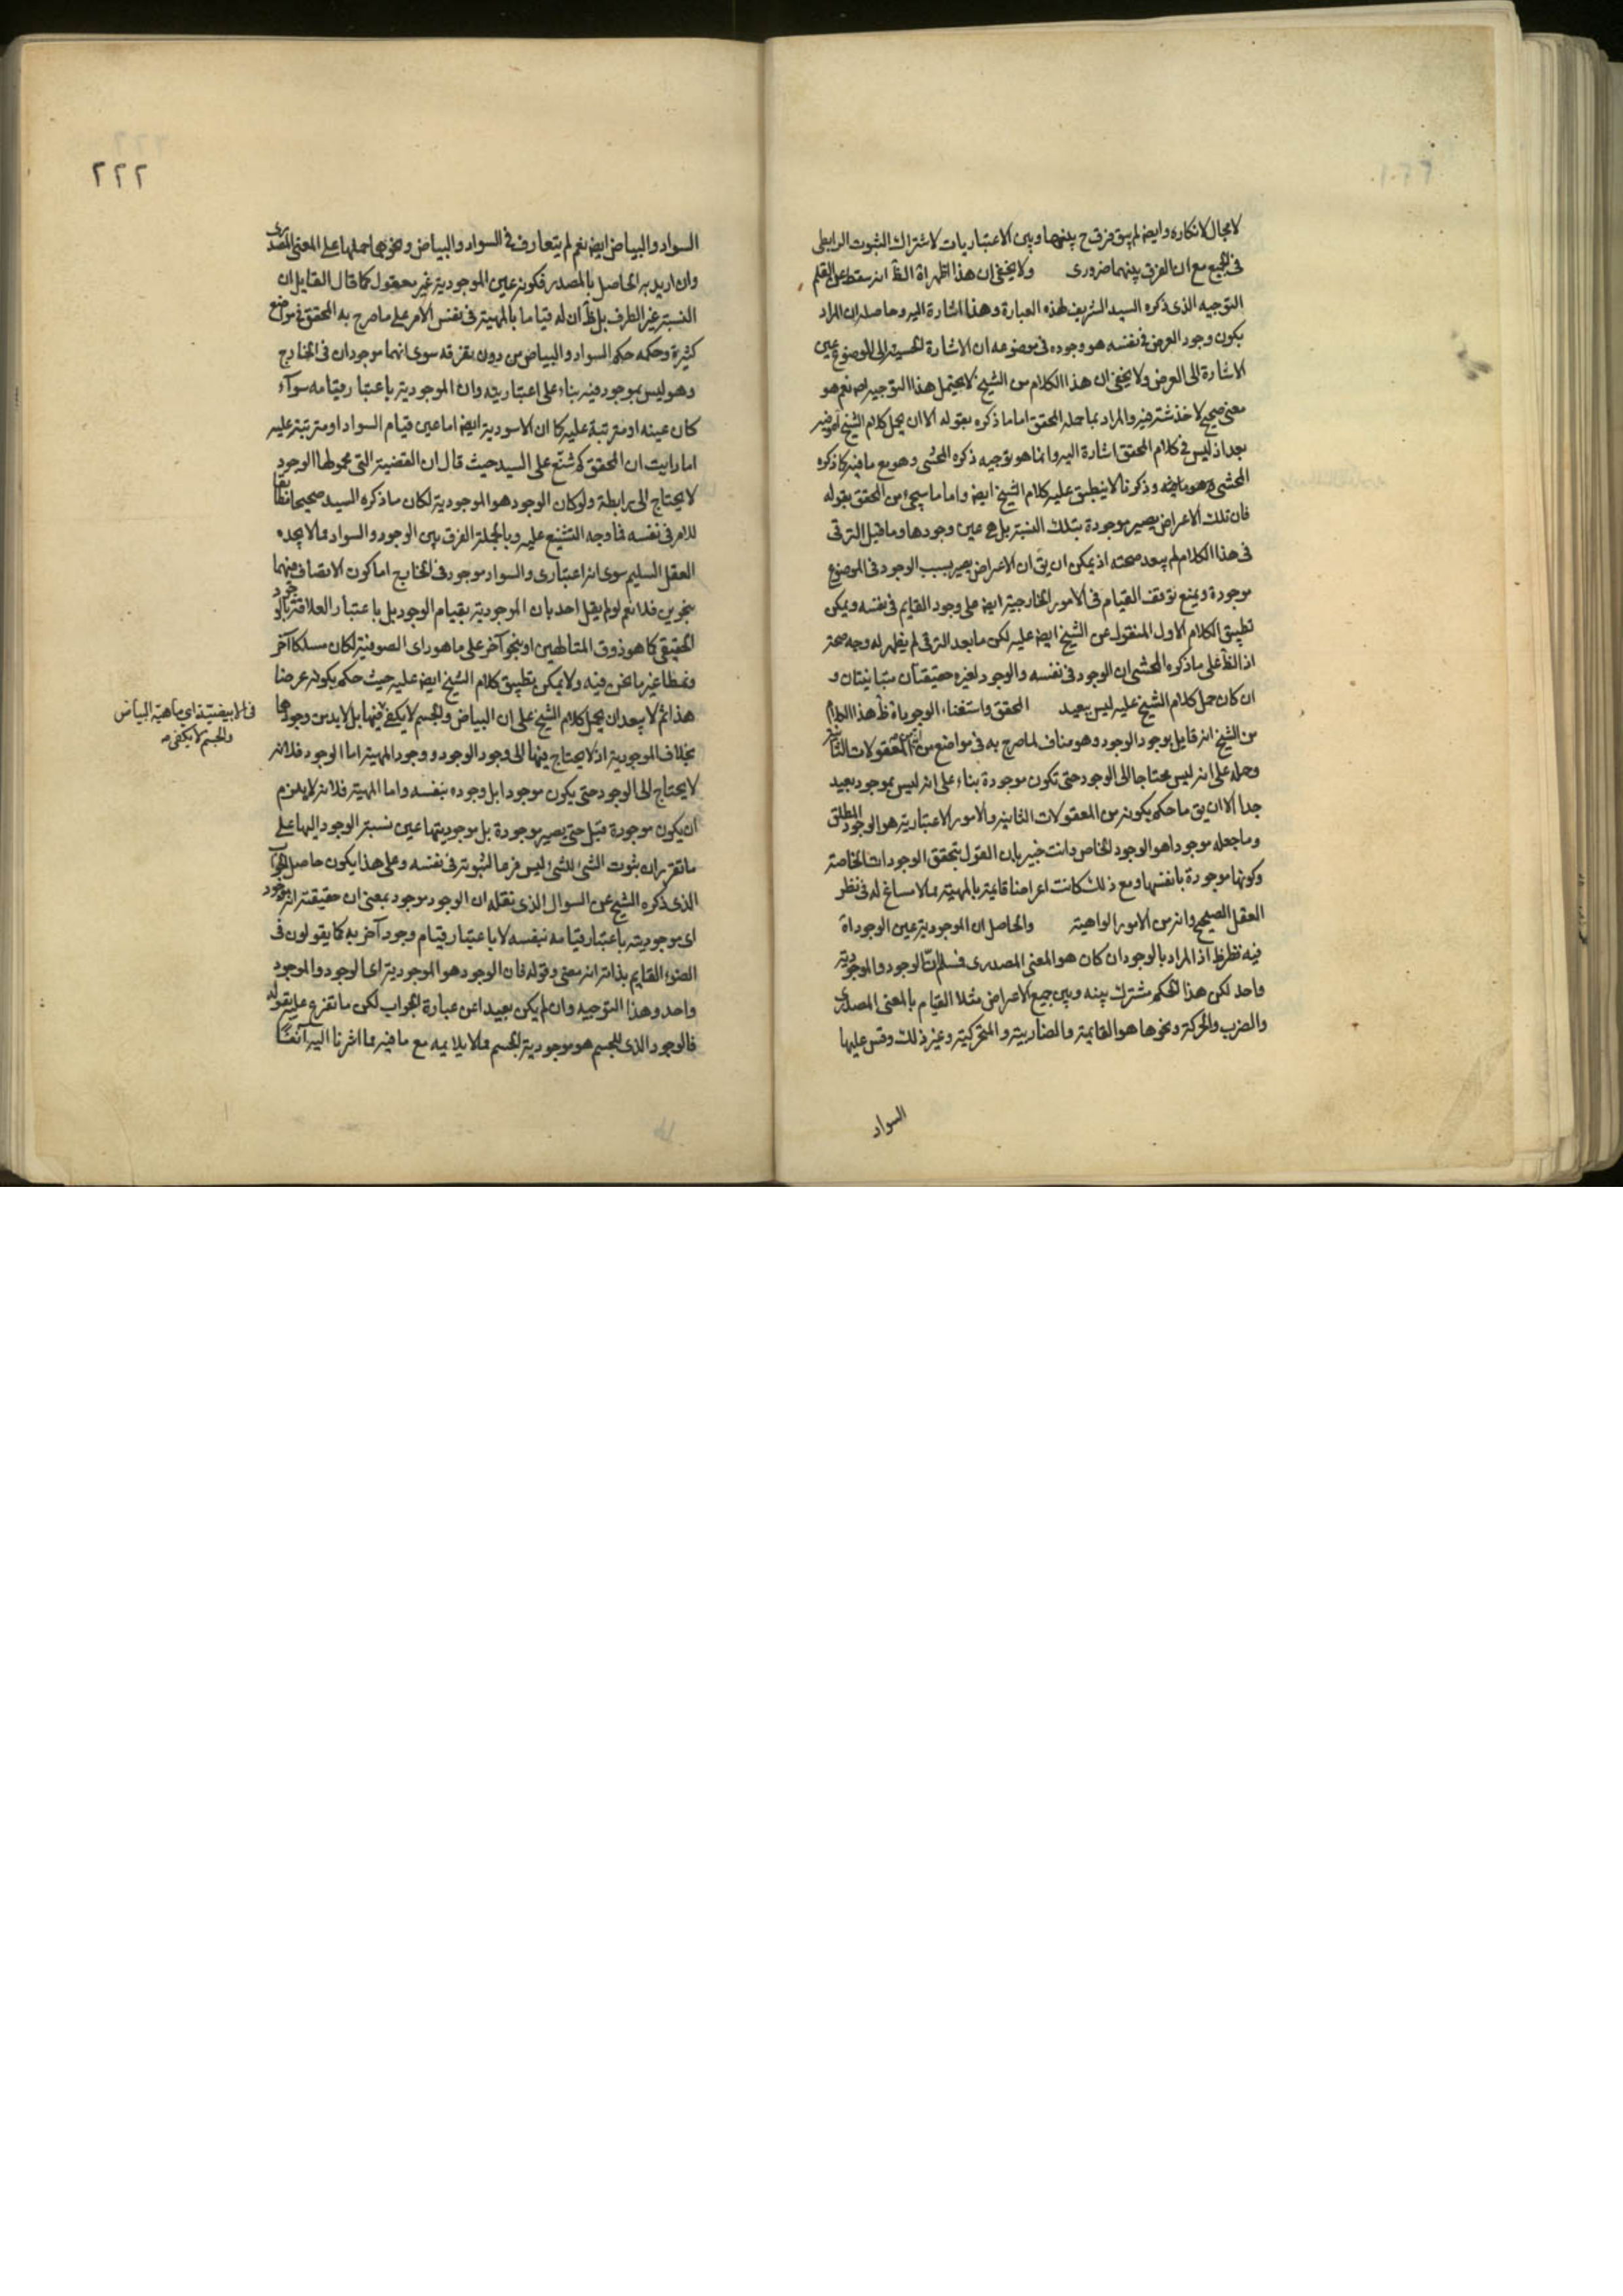 لا مجال لانكاره وايضا لم يبق فرق ح بينهما وبين الاعتباريات لاشتراك الثبوت الرابطى
فى الجميع مع ان الفرق بينهما ضرورى ولا يخفى ان هذا اظهر اه الظ انه سقط عن القلم
التوجيه الذى ذكره السيد الشريف لهذه العبارة وهذا اشارة اليه وحاصله ان المراد
بكون وجود العرض فى نفسه هو وجوده فى موضوعه ان الاشارة الحسية الى الموضوع عين
الاشارة الى العرض ولا يخفى ان هذا الكلام من الشيخ لا يحتمل هذا التوجيه نعم هو
معنى صحيح لا خدشة فيه والمراد بما حمله المحقق اما ما ذكره بقوله الا ان يحمل كلام الشيخ
بعد اذ ليس فى كلام المحقق اشارة اليه وانما هو توجيه ذكره المحشى وهو مع ما فيه كما ذكره
المحشى وذكرنا لا ينطبق عليه كلام الشيخ ايضا واما ما سيجئ من المحقق بقوله
فان تلك الاعراض يصير موجودة بتلك النسبة بل هى عين وجودها وما قبل الترقى
فى هذا الكلام لم يبعد صحته اذ يمكن ان يق ان الاعراض يصير بسبب الوجود فى الموضوع
موجودة ويمنع توقف القيام فى الامور الخارجية ايضا على وجود القايم فى نفسه ويمكن
تطبيق الكلام الاول المنقول عن الشيخ ايضا عليه لكن ما بعد الترقى لم يظهر له وجه صحة
اذ الظ على ما ذكره المحشى ان الوجود فى نفسه والوجود لغيره حقيقتان متباينتان و
ان كان حمل كلام الشيخ عليه ليس ببعيد المحقق واستغناء الوجود اه ظ هذا الكلام
من الشيخ انه قايل بوجود الوجود وهو مناف لما صرح به فى مواضع من انه من المعقولات الثانية
وحمله على انه ليس محتاجا الى الوجود حتى تكون موجودة بناء على انه ليس بموجود بعيد
جدا الا ان يق ما حكم بكونه من المعقولات الثانية والامور الاعتبارية هو الوجود المطلق
وما جعله موجودا هو الوجود الخاص وانت خبير بان القول بتحقق الوجودات الخاصة
وكونها موجودة بانفسها ومع ذلك كانت اعراضا قايمة بالمهية مما لا مساغ له فى نظر
العقل الصحيح وانه من الامور الواهية والحاصل ان الموجودية عين الوجود اه
فيه نظر ظ اذ المراد بالوجود ان كان هو المعنى المصدرى فسلم ان الوجود والموجودية
واحد لكن هذا الحكم مشترك بينه وبين جميع الاعراض مثلا القيام بالمعنى المصدرى
والضرب والحركة ونحوها هو القايمية والضاربية والمتحركية وغير ذلك وقس عليها
السواد
٢٢٢
السواد والبياض ايضا نعم لم يتعارف فى السواد والبياض ونحوهما حملها على المعنى المصدرى
وان اريد به الحاصل بالمصدر فكونه عين الموجودية غير معقول كما قال القايل ان
النسبة غير الطرف بل ظ ان له قياما بالمهية فى نفس الامر على ما صرح به المحقق فى مواضع
كثيرة وحكمه حكم السواد والبياض من دون تفرقه سوى انهما موجودان فى الخارج
وهو ليس بموجود فيه بناء على اعتباريته وان الموجودية باعتبار قيامه سواء
كان عينه او مترتبة عليه كما ان الاسودية ايضا اما عين قيام السواد او مترتبة عليه
اما رايت ان المحقق شنع على السيد حيث قال ان القضية التى محمولها الوجود
لا يحتاج الى رابطة ولو كان الوجود هو الموجودية لكان ما ذكره السيد صحيحا مطابقا
للامر فى نفسه فما وجه التشنيع عليه وبالجملة الفرق بين الوجود والسواد مما لا يجده
العقل السليم سوى انه اعتبارى والسواد موجود فى الخارج اما كون الاتصاف منهما
بنحوين فلا نعم لو لم يقل احد بان الموجودية بقيام الوجود بل باعتبار العلاقة بالوجود
الحقيقى كما هو ذوق المتالهين او بنحو آخر على ما هو راى الصوفية لكان مسلكا آخر
ونمطا غير ما نحن فيه ولا يمكن تطبيق كلام الشيخ ايضا عليه حيث حكم بكونه عرضا
هذا ثم لا يبعد ان يحمل كلام الشيخ على ان البياض والجسم لا يكفى فيها بل لا بد من وجودهما
بخلاف الموجودية اذ لا يحتاج فيها الى وجود الوجود ووجود المهية اما الوجود فلانه
لا يحتاج الى الوجود حتى يكون موجودا بل وجوده بنفسه واما المهية فلانه لا يلزم
ان يكون موجودة قبل حتى يصير موجودة بل موجوديتها عين نسبة الوجود اليها على
ما تقرر ان ثبوت الشئ للشئ ليس فرعا لثبوته فى نفسه وعلى هذا يكون حاصل الجواب
الذى ذكره الشيخ عن السوال الذى نقله ان الوجود موجود بمعنى ان حقيقته انه موجود
اى موجوديته باعتبار قيامه بنفسه لا باعتبار قيام وجود آخر به كما يقولون فى
الضوء القايم بذاته انه مضئ وقوله فان الوجود هو الموجودية اى الوجود والموجود
واحد وهذا التوجيه وان لم يكن بعيدا عن عبارة الجواب لكن ما تفرع عليه بقوله
فالوجود الذى للجسم هو موجودية الجسم مما لا يلايمه مع ما فيه مما اشرنا اليه آنفا
فى الابيضية اى ماهية البياض
والجسم لا يكفى